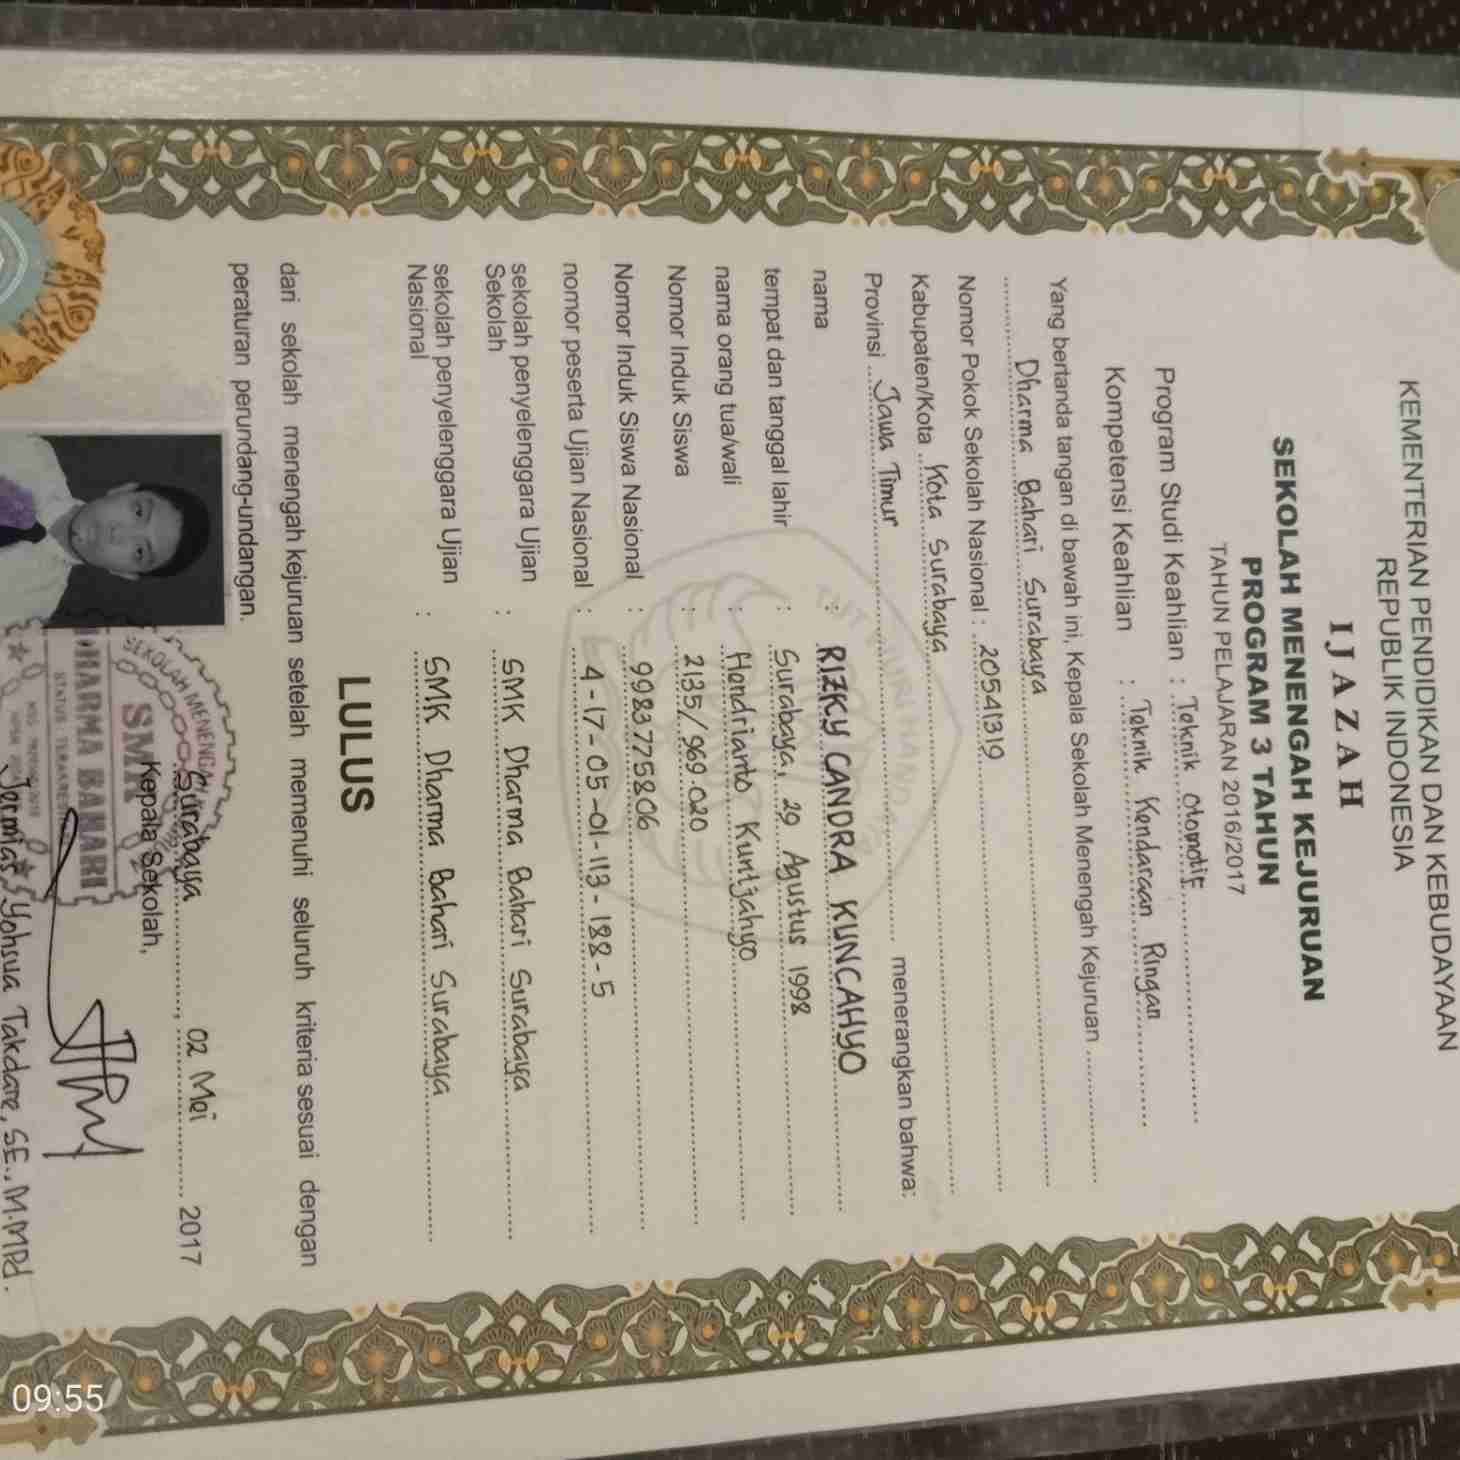 KEMENTERIAN PENDIDIKAN DAN KEBUDAYAAN
REPUBLIK INDONESIA
IJAZAH
SEKOLAH MENENGAH KEJURUAN
PROGRAM 3 TAHUN
TAHUN PELAJARAN 2016/2017
Program Studi Keahlian : Teknik Otomotif
Kompetensi Keahlian : Teknik Kendaraan Ringan
Yang bertanda tangan di bawah ini, Kepala Sekolah Menengah Kejuruan
Dharma Bahari Surabaya
Nomor Pokok Sekolah Nasional : 20541319
Kabupaten/Kota Kota Surabaya
Provinsi Jawa Timur menerangkan bahwa:
nama : RIZKY CANDRA KUNCAHYO
tempat dan tanggal lahir : Surabaya, 29 Agustus 1998
nama orang tua/wali : Handrianto Kuntjahyo
Nomor Induk Siswa : 2135/969.020
Nomor Induk Siswa Nasional : 9983775806
nomor peserta Ujian Nasional : 4-17-05-01-113-188-5
sekolah penyelenggara Ujian Sekolah : SMK Dharma Bahari Surabaya
sekolah penyelenggara Ujian Nasional : SMK Dharma Bahari Surabaya
LULUS
dari sekolah menengah kejuruan setelah memenuhi seluruh kriteria sesuai dengan
peraturan perundang-undangan.
Surabaya, 02 Mei 2017
Kepala Sekolah,
SEKOLAH MENENGAH
SMK
DHARMA BAHARI
Jermias Yohsua Takdare, SE., M.MPd.
TUT WURI HANDAYANI
09:55